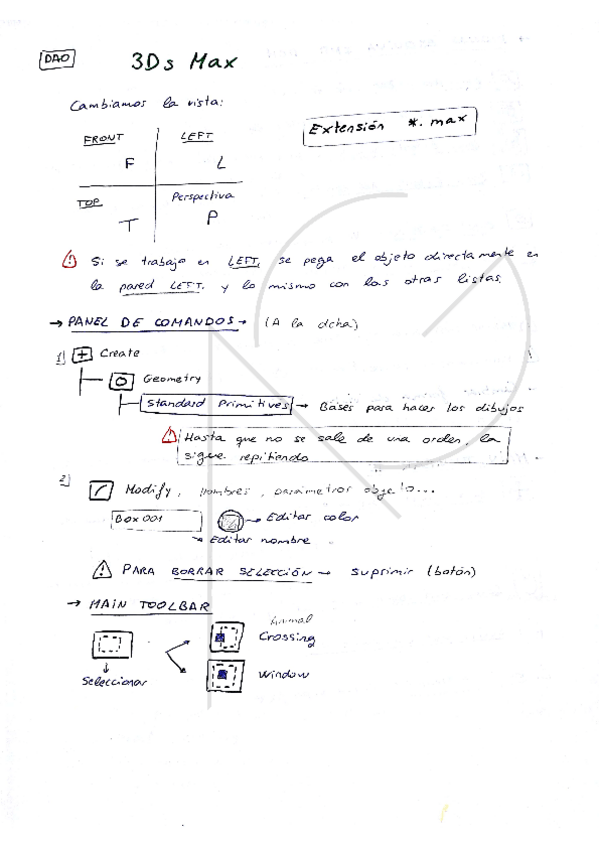 DAO
3Ds Max
Cambiamos la vista:
Extensión *.max
FRONT
LEFT
F
L
TOP
Perspectiva
T
P
Si se trabaja en LEFT, se pega el objeto directamente en
la pared LEFT. y lo mismo con las otras listas.
→ PANEL DE COMANDOS → (A la dcha)
1) Create
Geometry
Standard Primitives → Bases para hacer los dibujos
Hasta que no se sale de una orden, la
sigue repitiendo
2) Modify, nombres, parámetros objeto...
Box001
→ Editar color
→ Editar nombre
PARA BORRAR SELECCIÓN → Suprimir (botón)
→ MAIN TOOLBAR
Animal
Crossing
Seleccionar
Window